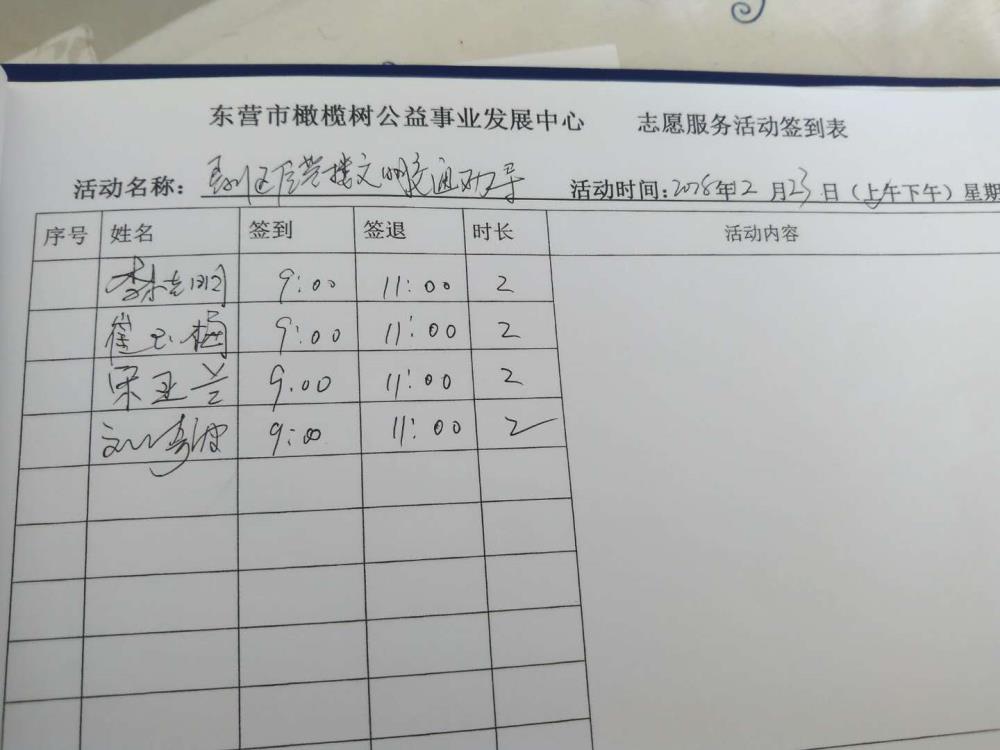 东营市橄榄树公益事业发展中心 志愿服务活动签到表
活动名称： 文明交通劝导 活动时间:2018年12月23日（上午下午）星期
序号 姓名 签到 签退 时长 活动内容
9:00 11:00 2
崔玉梅 9:00 11:00 2
宋亚兰 9.00 11:00 2
刘秀波 9:00 11:00 2